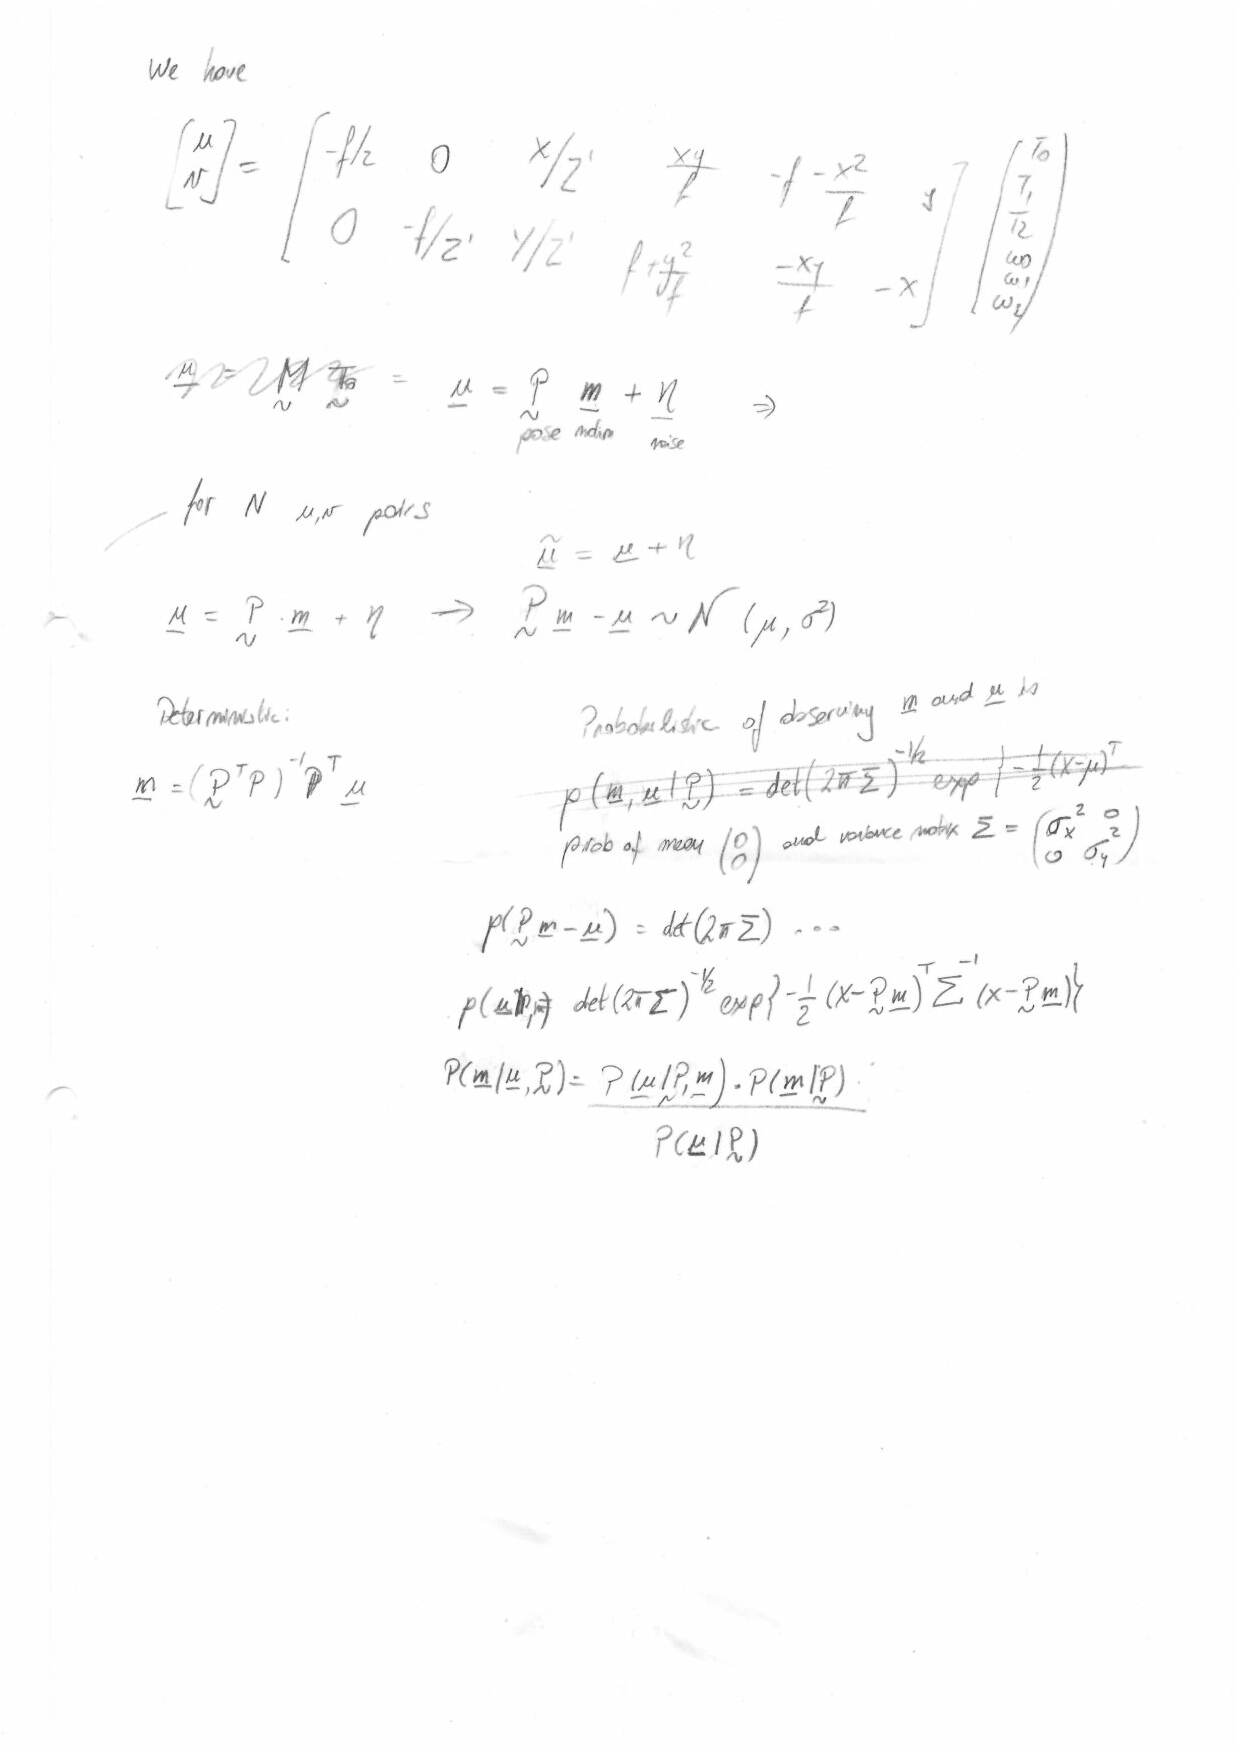 We have
[μ ν] = [ -f/z 0 x/z' xy/f -f-x²/f y
0 -f/z' y/z' f+y²/f -xy/f -x ] [T0 T1 T2 ω0 ω1 ω2]
= μ = P m + η ⇒
pose motion noise
for N μ,ν pairs
μ̃ = μ + η
μ = P · m + η → P m - μ ~ N (μ, σ²)
Deterministic:
m = (PᵀP)⁻¹ Pᵀ μ
Probabalistic of observing m and μ is
p(m, μ | P) = det(2πΣ)^-1/2 exp{-1/2 (x-μ)ᵀ
prob of mean (0 0) and variance matrix Σ = (σx² 0 0 σy²)
p(P m - μ) = det(2πΣ) ...
p(μ|P,m) det(2πΣ)^-1/2 exp{-1/2 (x-P m)ᵀ Σ⁻¹ (x-P m)}
P(m|μ,P) = P(μ|P,m) · P(m|P)
P(μ|P)